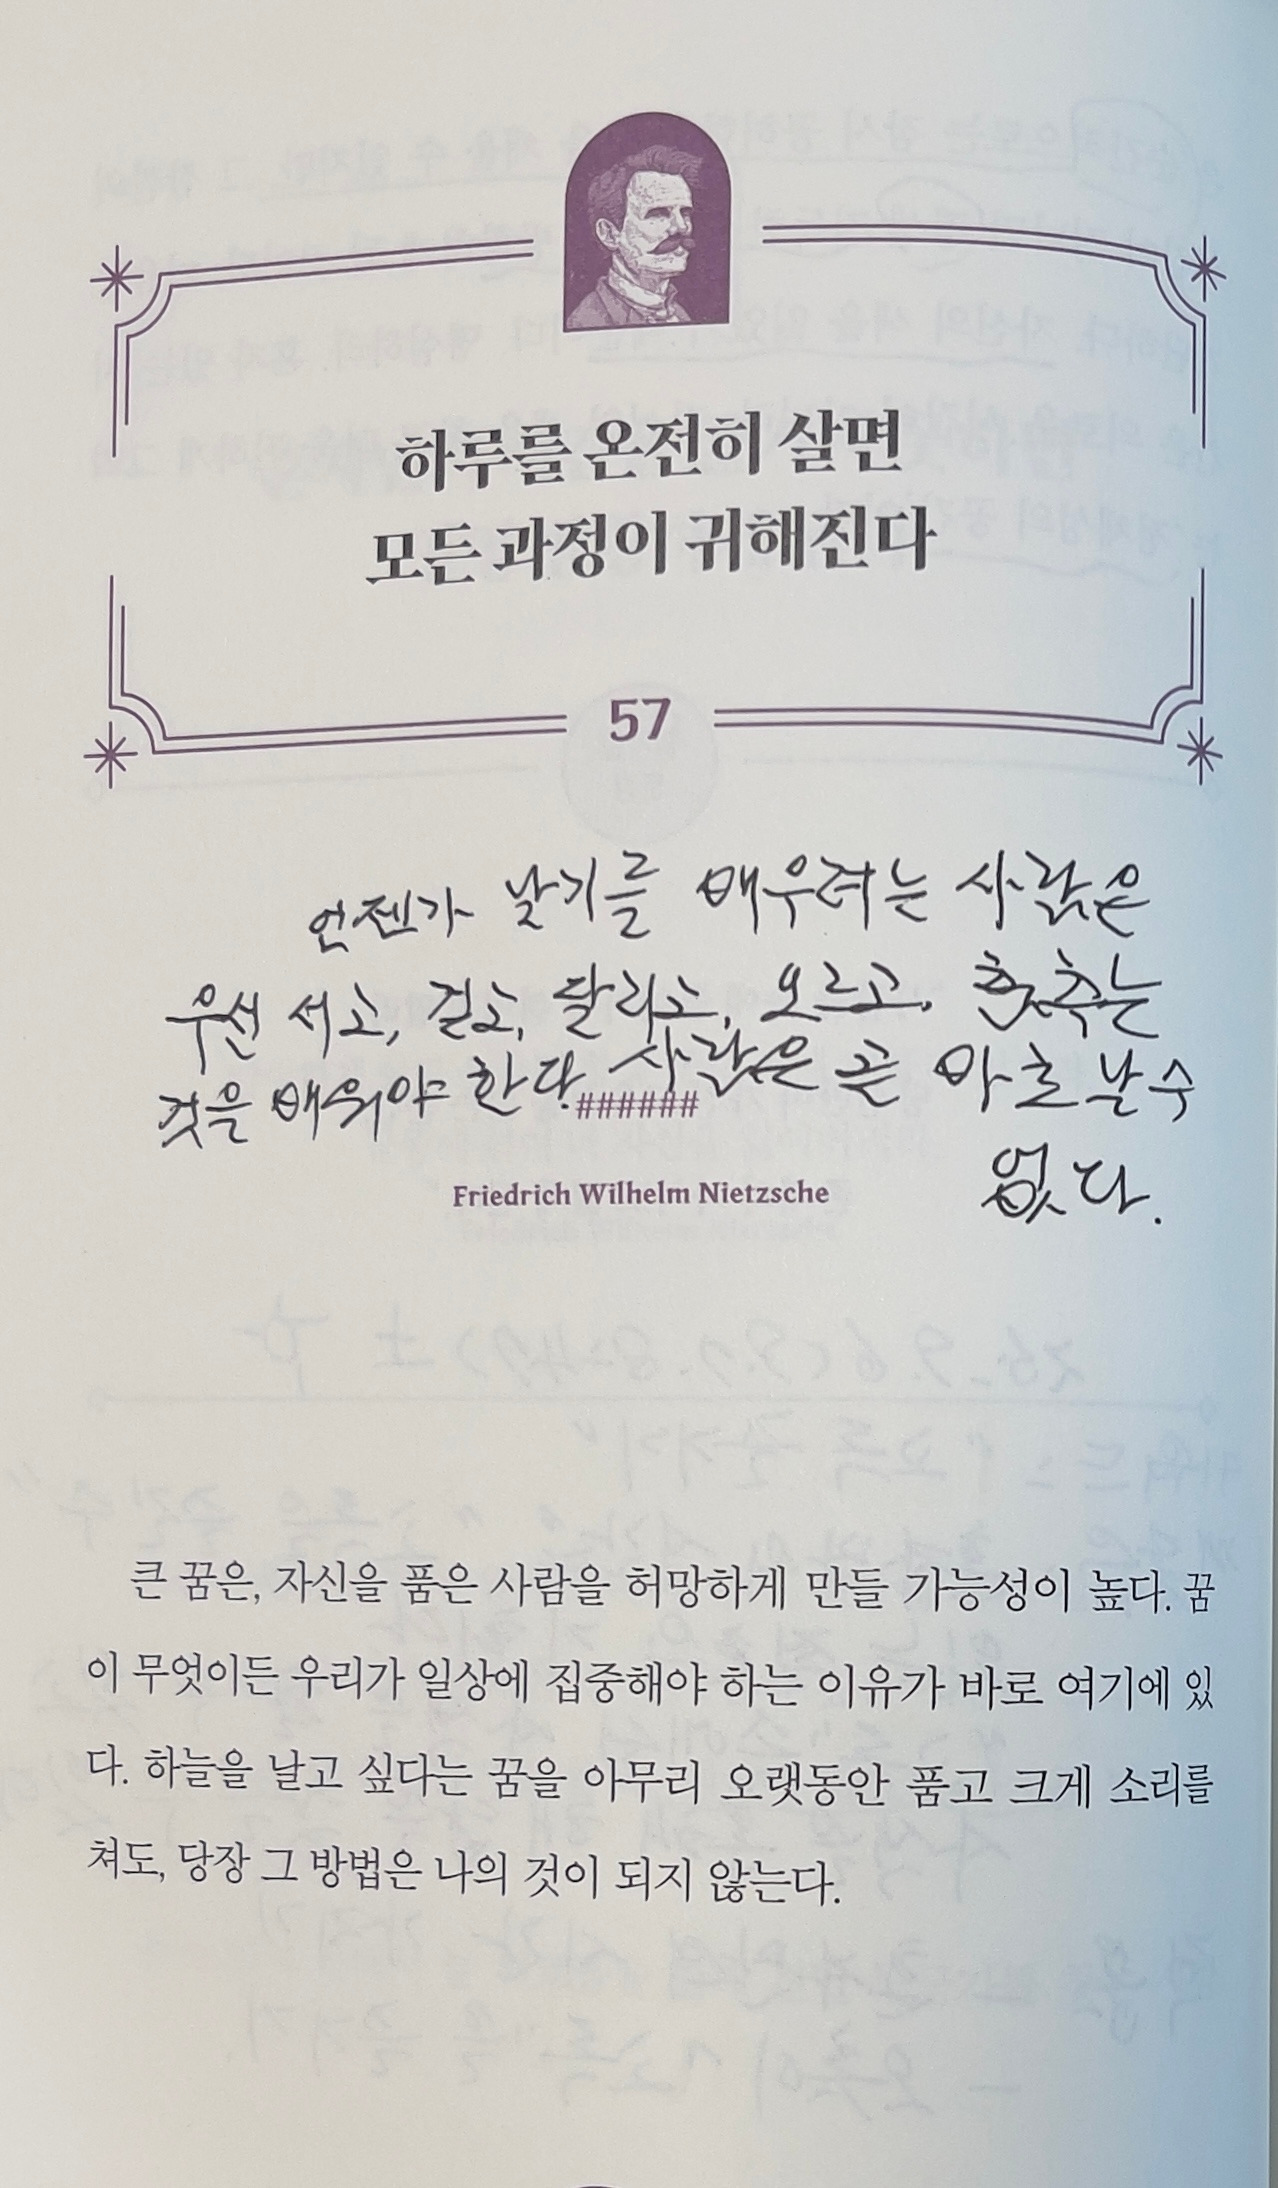 하루를 온전히 살면
모든 과정이 귀해진다
57
언젠가 날기를 배우려는 사람은
우선 서고, 걷고, 달리고, 오르고, 춤추는
것을 배워야 한다. 사람은 곧 바로 날 수
없다.
######
Friedrich Wilhelm Nietzsche
큰 꿈은, 자신을 품은 사람을 허망하게 만들 가능성이 높다. 꿈
이 무엇이든 우리가 일상에 집중해야 하는 이유가 바로 여기에 있
다. 하늘을 날고 싶다는 꿈을 아무리 오랫동안 품고 크게 소리를
쳐도, 당장 그 방법은 나의 것이 되지 않는다.